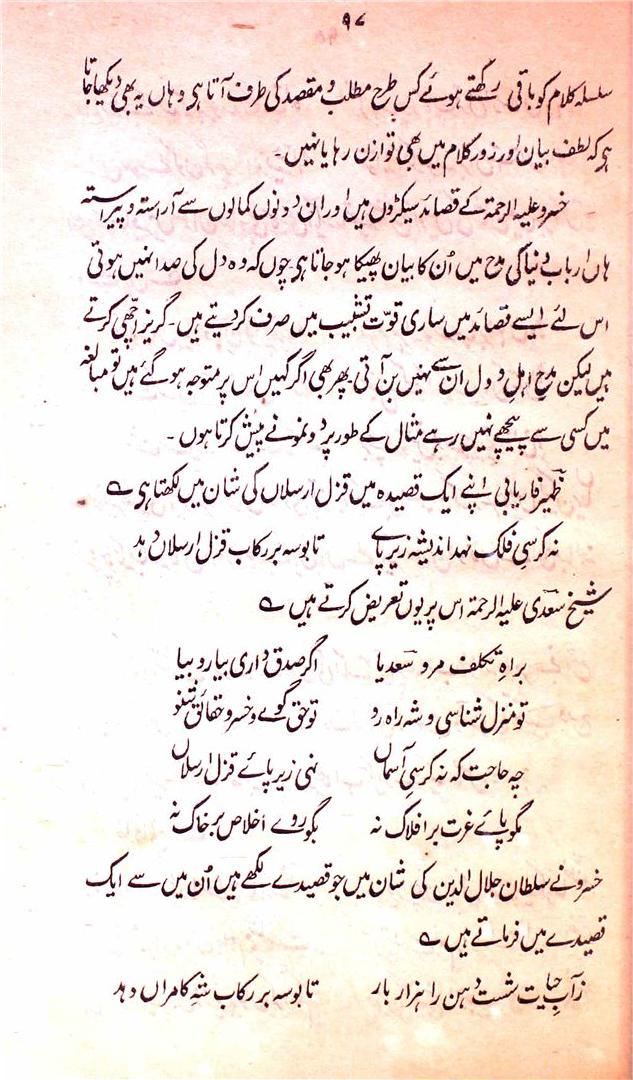 ۹۷
سلسلہ کلام کو باقی رکھتے ہوئے کس طرح مطلب و مقصد کی طرف آتا ہی وہاں یہ بھی دیکھا جاتا
ہی کہ لطف بیان اور زور کلام میں بھی توازن رہا یا نہیں۔
خسرو علیہ الرحمۃ کے قصائد سیکڑوں ہیں اور ان دونوں کمالوں سے آراستہ و پیراستہ
ہاں ارباب دنیا کی مدح میں اُن کا بیان پھیکا ہو جاتا ہی چوں کہ وہ دل کی صدا نہیں ہوتی
اس لئے ایسے قصائد میں ساری قوت تشبیب میں صرف کر دیتے ہیں۔ گریز اچھی کرتے
ہیں لیکن مدح اہل دول ان سے نہیں بن آتی۔ پھر بھی اگر کہیں اس پر متوجہ ہو گئے ہیں تو مبالغہ
میں کسی سے پیچھے نہیں رہے مثال کے طور پر دو نمونے پیش کرتا ہوں۔
ظہیر فاریابی اپنے ایک قصیدہ میں قزل ارسلاں کی شان میں لکھتا ہی ؎
نہ کرسیِ فلک نہد اندیشہ زیر پاے تا بوسہ بر رکاب قزل ارسلاں دہد
شیخ سعدی علیہ الرحمۃ اس پر یوں تعریض کرتے ہیں ؎
براہِ تکلف مرو سعدیا اگر صدق داری بیار و بیا
تو منزل شناسی و شہ راہ رو تو حق گوے و خسرو حقائق شنو
چہ حاجت کہ نہ کرسیِ آسماں نہی زیر پاے قزل ارسلاں
مگو پاے عزت بر افلاک نہ بگو روے اخلاص بر خاک نہ
خسرو نے سلطان جلال الدین کی شان میں جو قصیدے لکھے ہیں اُن میں سے ایک
قصیدے میں فرماتے ہیں ؎
زآب حیات شست دہن را ہزار بار تا بوسہ بر رکاب شہِ کامراں دہد